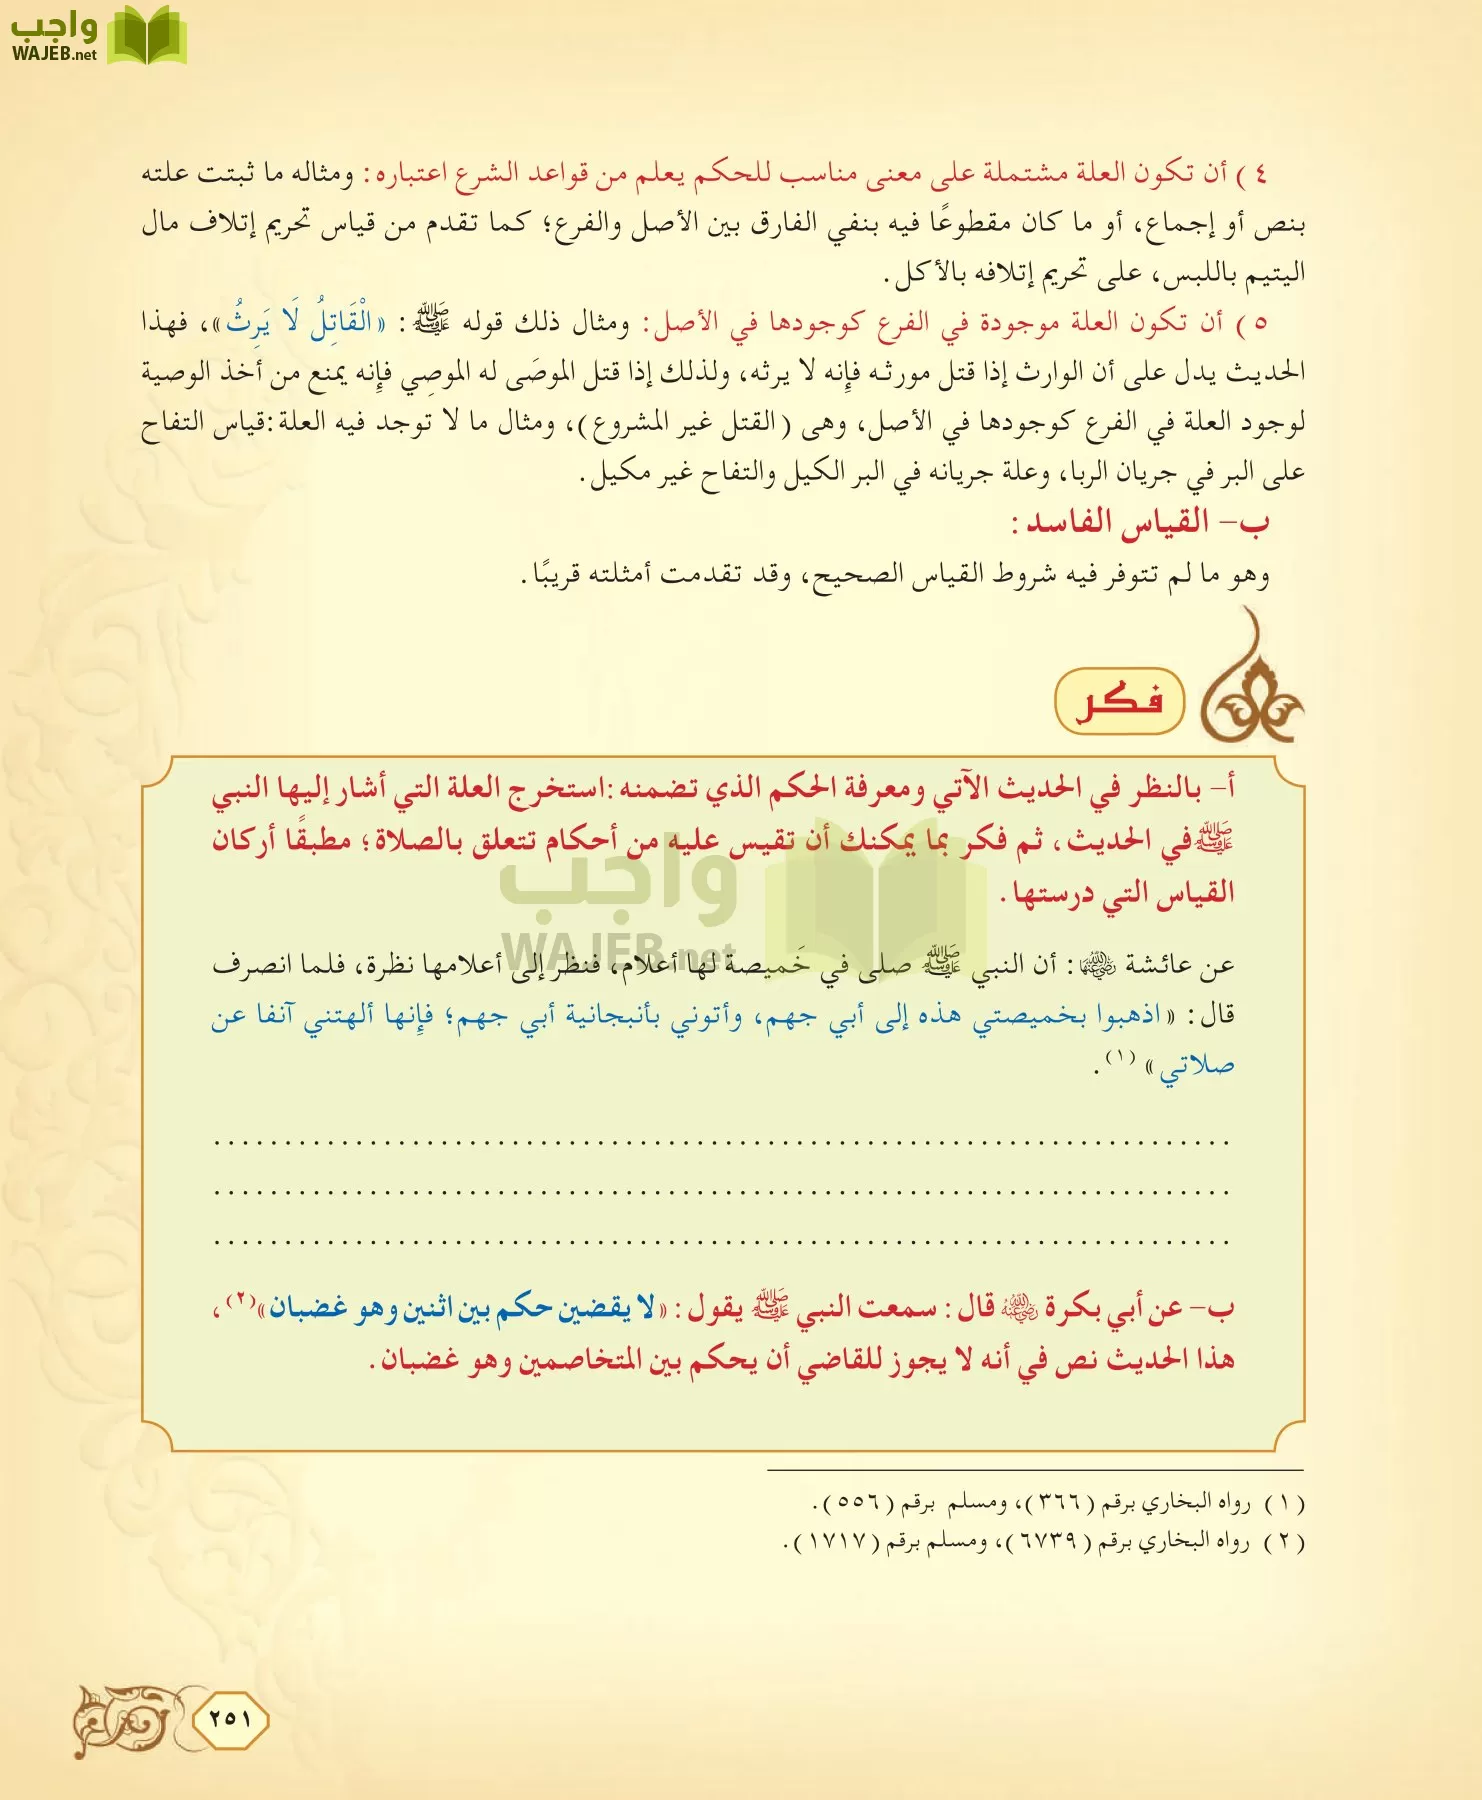 واجب
WAJEB.net
٤ ) أن تكون العلة مشتملة على معنى مناسب للحكم يعلم من قواعد الشرع اعتباره: ومثاله ما ثبتت علته
بنص أو إجماع، أو ما كان مقطوعًا فيه بنفي الفارق بين الأصل والفرع؛ كما تقدم من قياس تحريم إتلاف مال
اليتيم باللبس، على تحريم إتلافه بالأكل.
٥ ) أن تكون العلة موجودة في الفرع كوجودها في الأصل: ومثال ذلك قوله ﷺ: «الْقَاتِلُ لَا يَرِثُ»، فهذا
الحديث يدل على أن الوارث إذا قتل مورثه فإنه لا يرثه، ولذلك إذا قتل الموصَى له الموصِي فإنه يمنع من أخذ الوصية
لوجود العلة في الفرع كوجودها في الأصل، وهى (القتل غير المشروع)، ومثال ما لا توجد فيه العلة:قياس التفاح
على البر في جريان الربا، وعلة جريانه في البر الكيل والتفاح غير مكيل.
ب- القياس الفاسد:
وهو ما لم تتوفر فيه شروط القياس الصحيح، وقد تقدمت أمثلته قريبًا.
فكر
أ- بالنظر في الحديث الآتي ومعرفة الحكم الذي تضمنه:استخرج العلة التي أشار إليها النبي
ﷺفي الحديث، ثم فكر بما يمكنك أن تقيس عليه من أحكام تتعلق بالصلاة؛ مطبقًا أركان
القياس التي درستها.
واجب
WAJEB.net
عن عائشة رضي الله عنها: أن النبي ﷺ صلى في خَميصة لها أعلام، فنظر إلى أعلامها نظرة، فلما انصرف
قال: «اذهبوا بخميصتي هذه إلى أبي جهم، وأتوني بأنبجانية أبي جهم؛ فإنها ألهتني آنفا عن
صلاتي» (١).
..........................................................................
..........................................................................
..........................................................................
ب- عن أبي بكرة رضي الله عنه قال: سمعت النبي ﷺ يقول: «لا يقضين حكم بين اثنين وهو غضبان»(٢)،
هذا الحديث نص في أنه لا يجوز للقاضي أن يحكم بين المتخاصمين وهو غضبان.
(١) رواه البخاري برقم (٣٦٦)، ومسلم برقم (٥٥٦).
(٢) رواه البخاري برقم (٦٧٣٩)، ومسلم برقم (١٧١٧).
٢٥١